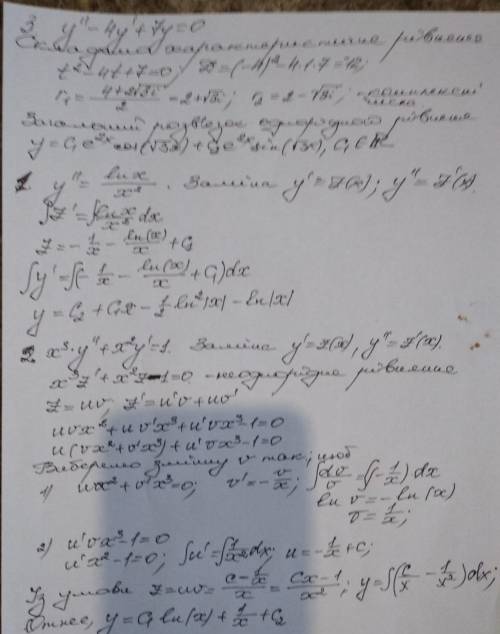 3. y'' - 4y' + 7y = 0
Складемо характеристичне рівняння
t² - 4t + 7 = 0; D = (-4)² - 4·1·7 = -12;
r₁ = (4 + 2√3i)/2 = 2 + √3i; r₂ = 2 - √3i; - комплексні числа
Загальний розв'язок однорідного рівняння
y = C₁e²ˣcos(√3x) + C₂e²ˣsin(√3x), C₁ ∈ R
1 y'' = lnx/x². Заміна y' = z(x); y'' = z'(x).
∫z' = ∫lnx/x² dx
z = -1/x - ln(x)/x + C₁
∫y' = ∫(-1/x - ln(x)/x + C₁)dx
y = C₂ + C₁x - 1/2 ln²|x| - ln|x|
2 x³·y'' + x²y' = 1. Заміна y' = z(x), y'' = z'(x).
x³z' + x²z - 1 = 0 - неоднорідне рівняння
z = uv; z' = u'v + uv'
uvx² + uv'x³ + u'vx³ - 1 = 0
u(vx² + v'x³) + u'vx³ - 1 = 0
Виберемо змінну v так, щоб
1) vx² + v'x³ = 0; v' = -v/x; ∫dv/v = ∫(-1/x)dx
ln v = -ln(x)
v = 1/x;
2) u'vx³ - 1 = 0
u'x² - 1 = 0; ∫u' = ∫1/x² dx; u = -1/x + C;
Із умови z = uv = (C - 1/x)/x = (Cx - 1)/x²; y = ∫(C/x - 1/x²)dx;
Отже, y = C₁ ln(x) + 1/x + C₂